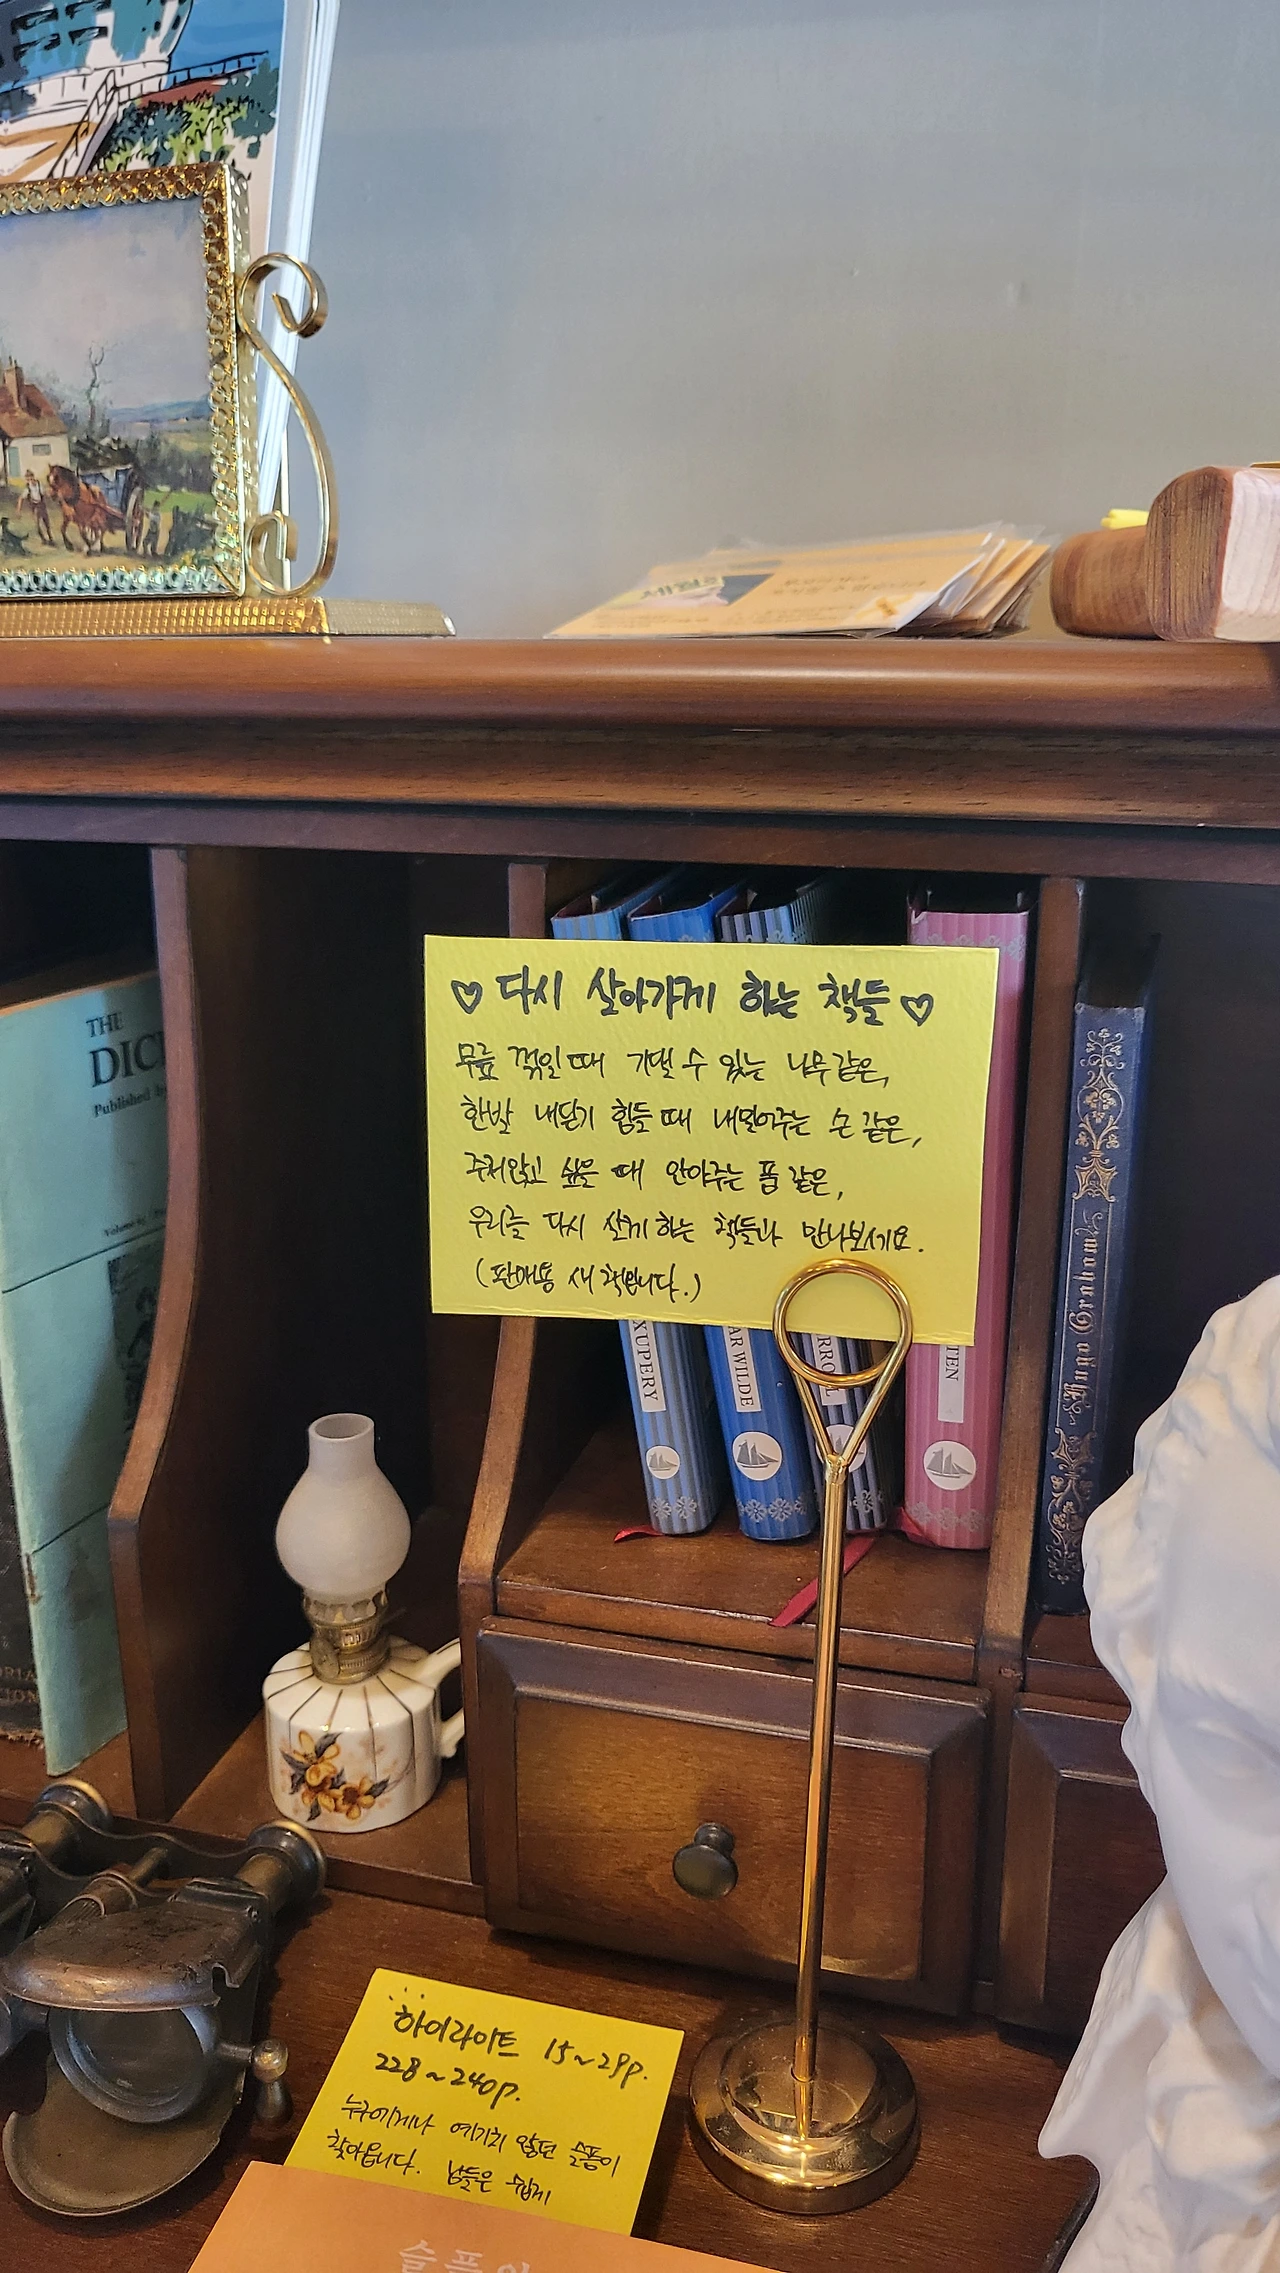 THE
DIC
Published by
♡ 다시 살아가게 하는 책들 ♡
무릎 꺾일 때 기댈 수 있는 나무 같은,
한발 내딛기 힘들 때 내밀어주는 손 같은,
주저앉고 싶을 때 안아주는 품 같은,
우리를 다시 살게 하는 책들과 만나보세요.
(판매용 새 책입니다.)
XUPERY
AR WILDE
RROL
TEN
Hugo Graham
하이라이트 15~29p.
228~240p.
누구에게나 예기치 않던 슬픔이
찾아옵니다. 남들은 쉽게
슬픔의